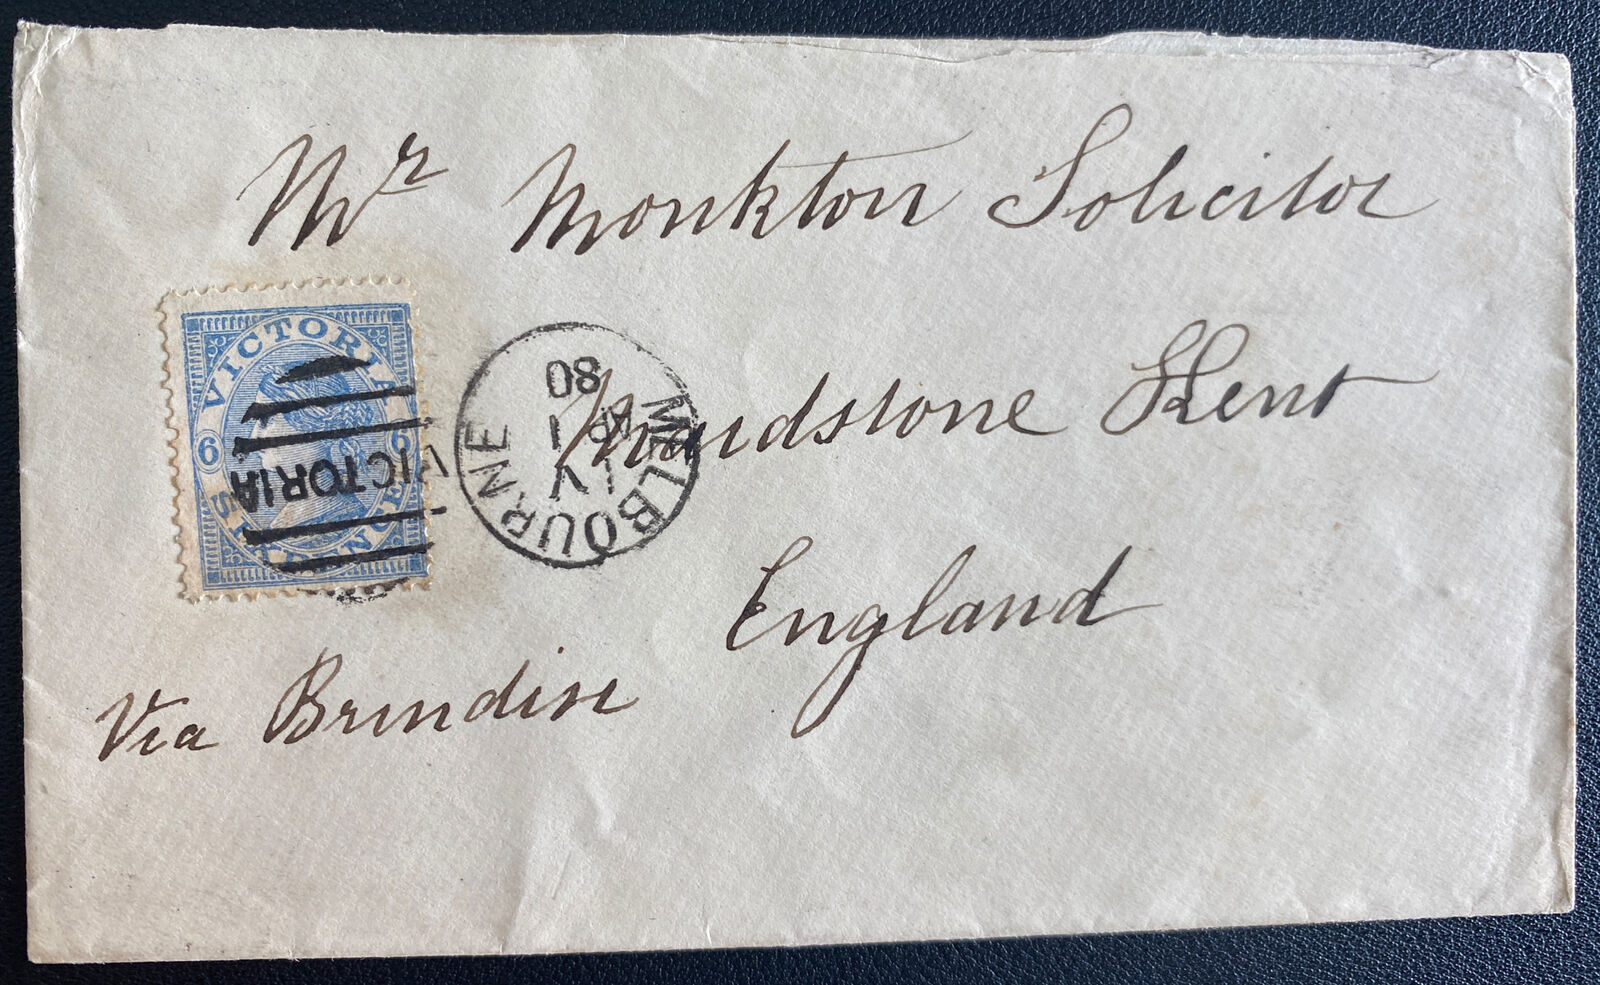 Mr Monkton Solicitor
VICTORIA
6 6
SIXPENCE
VICTORIA
MELBOURNE
80
AP 1
Maidstone Kent
England
Via Brindisi